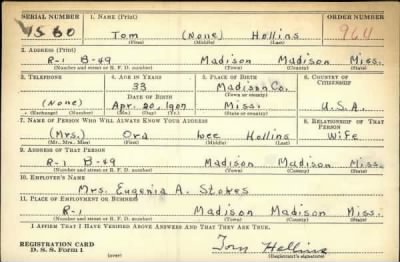 SERIAL NUMBER 1. NAME (Print) ORDER NUMBER
1560 Tom (None) Hollins 964
(First) (Middle) (Last)
2. ADDRESS (Print)
R-1 B-49 Madison Madison Miss.
(Number and street or R. F. D. number) (Town) (County) (State)
3. TELEPHONE 4. AGE IN YEARS 5. PLACE OF BIRTH 6. COUNTRY OF CITIZENSHIP
33 Madison Co.
DATE OF BIRTH (Town or county)
(None) Apr. 20, 1907 Miss. U.S.A.
(Exchange) (Number) (Mo.) (Day) (Yr.) (State or country)
7. NAME OF PERSON WHO WILL ALWAYS KNOW YOUR ADDRESS 8. RELATIONSHIP OF THAT PERSON
(Mrs.) Ora Lee Hollins Wife
(Mr., Mrs., Miss) (First) (Middle) (Last)
9. ADDRESS OF THAT PERSON
R-1 B-49 Madison Madison Miss.
(Number and street or R. F. D. number) (Town) (County) (State)
10. EMPLOYER'S NAME
Mrs. Eugenia A. Stokes
11. PLACE OF EMPLOYMENT OR BUSINESS
R-1 Madison Madison Miss.
(Number and street or R. F. D. number) (Town) (County) (State)
I AFFIRM THAT I HAVE VERIFIED ABOVE ANSWERS AND THAT THEY ARE TRUE.
REGISTRATION CARD
D. S. S. Form 1 (over) Tom Hollins
(Registrant's signature)